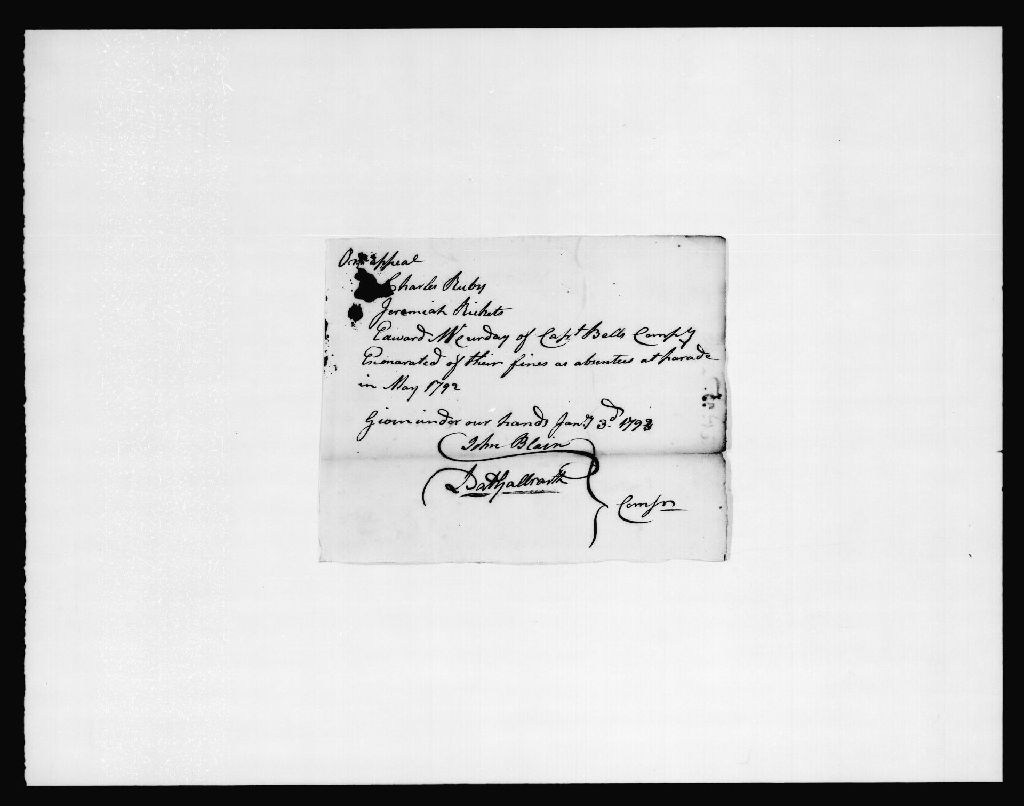 On appeal
Charles Ruby
Jeremiah Rickets
Edward McCurday of Capt Bells Compy
Exonarated of their fines as absentees at parade
in May 1792
Given under our hands Jany 3d 1793
John Blain
Bat Galbraith
Comsrs